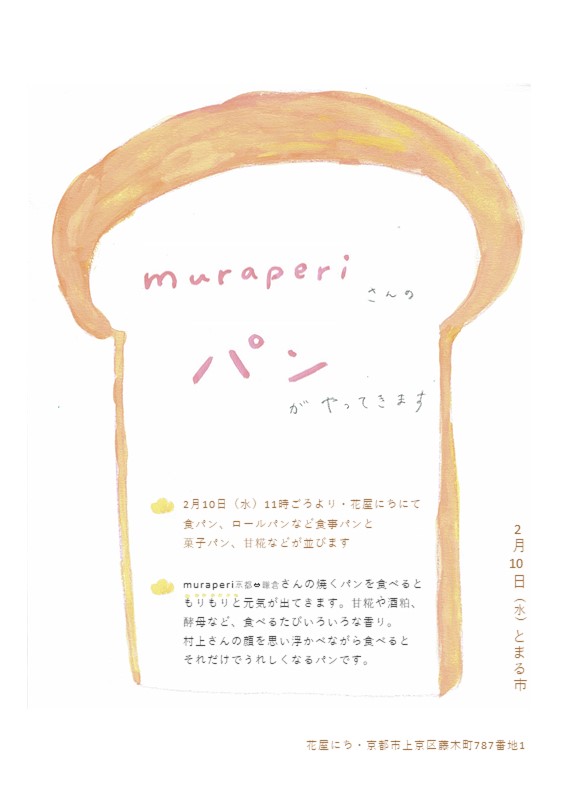 muraperi
さんの
パン
がやってきます
2月10日（水）11時ごろより・花屋にちにて
食パン、ロールパンなど食事パンと
菓子パン、甘糀などが並びます
muraperi京都⇔鎌倉さんの焼くパンを食べると
もりもりと元気が出てきます。甘糀や酒粕、
酵母など、食べるたびいろいろな香り。
村上さんの顔を思い浮かべながら食べると
それだけでうれしくなるパンです。
2月10日（水）とまる市
花屋にち・京都市上京区藤木町787番地1